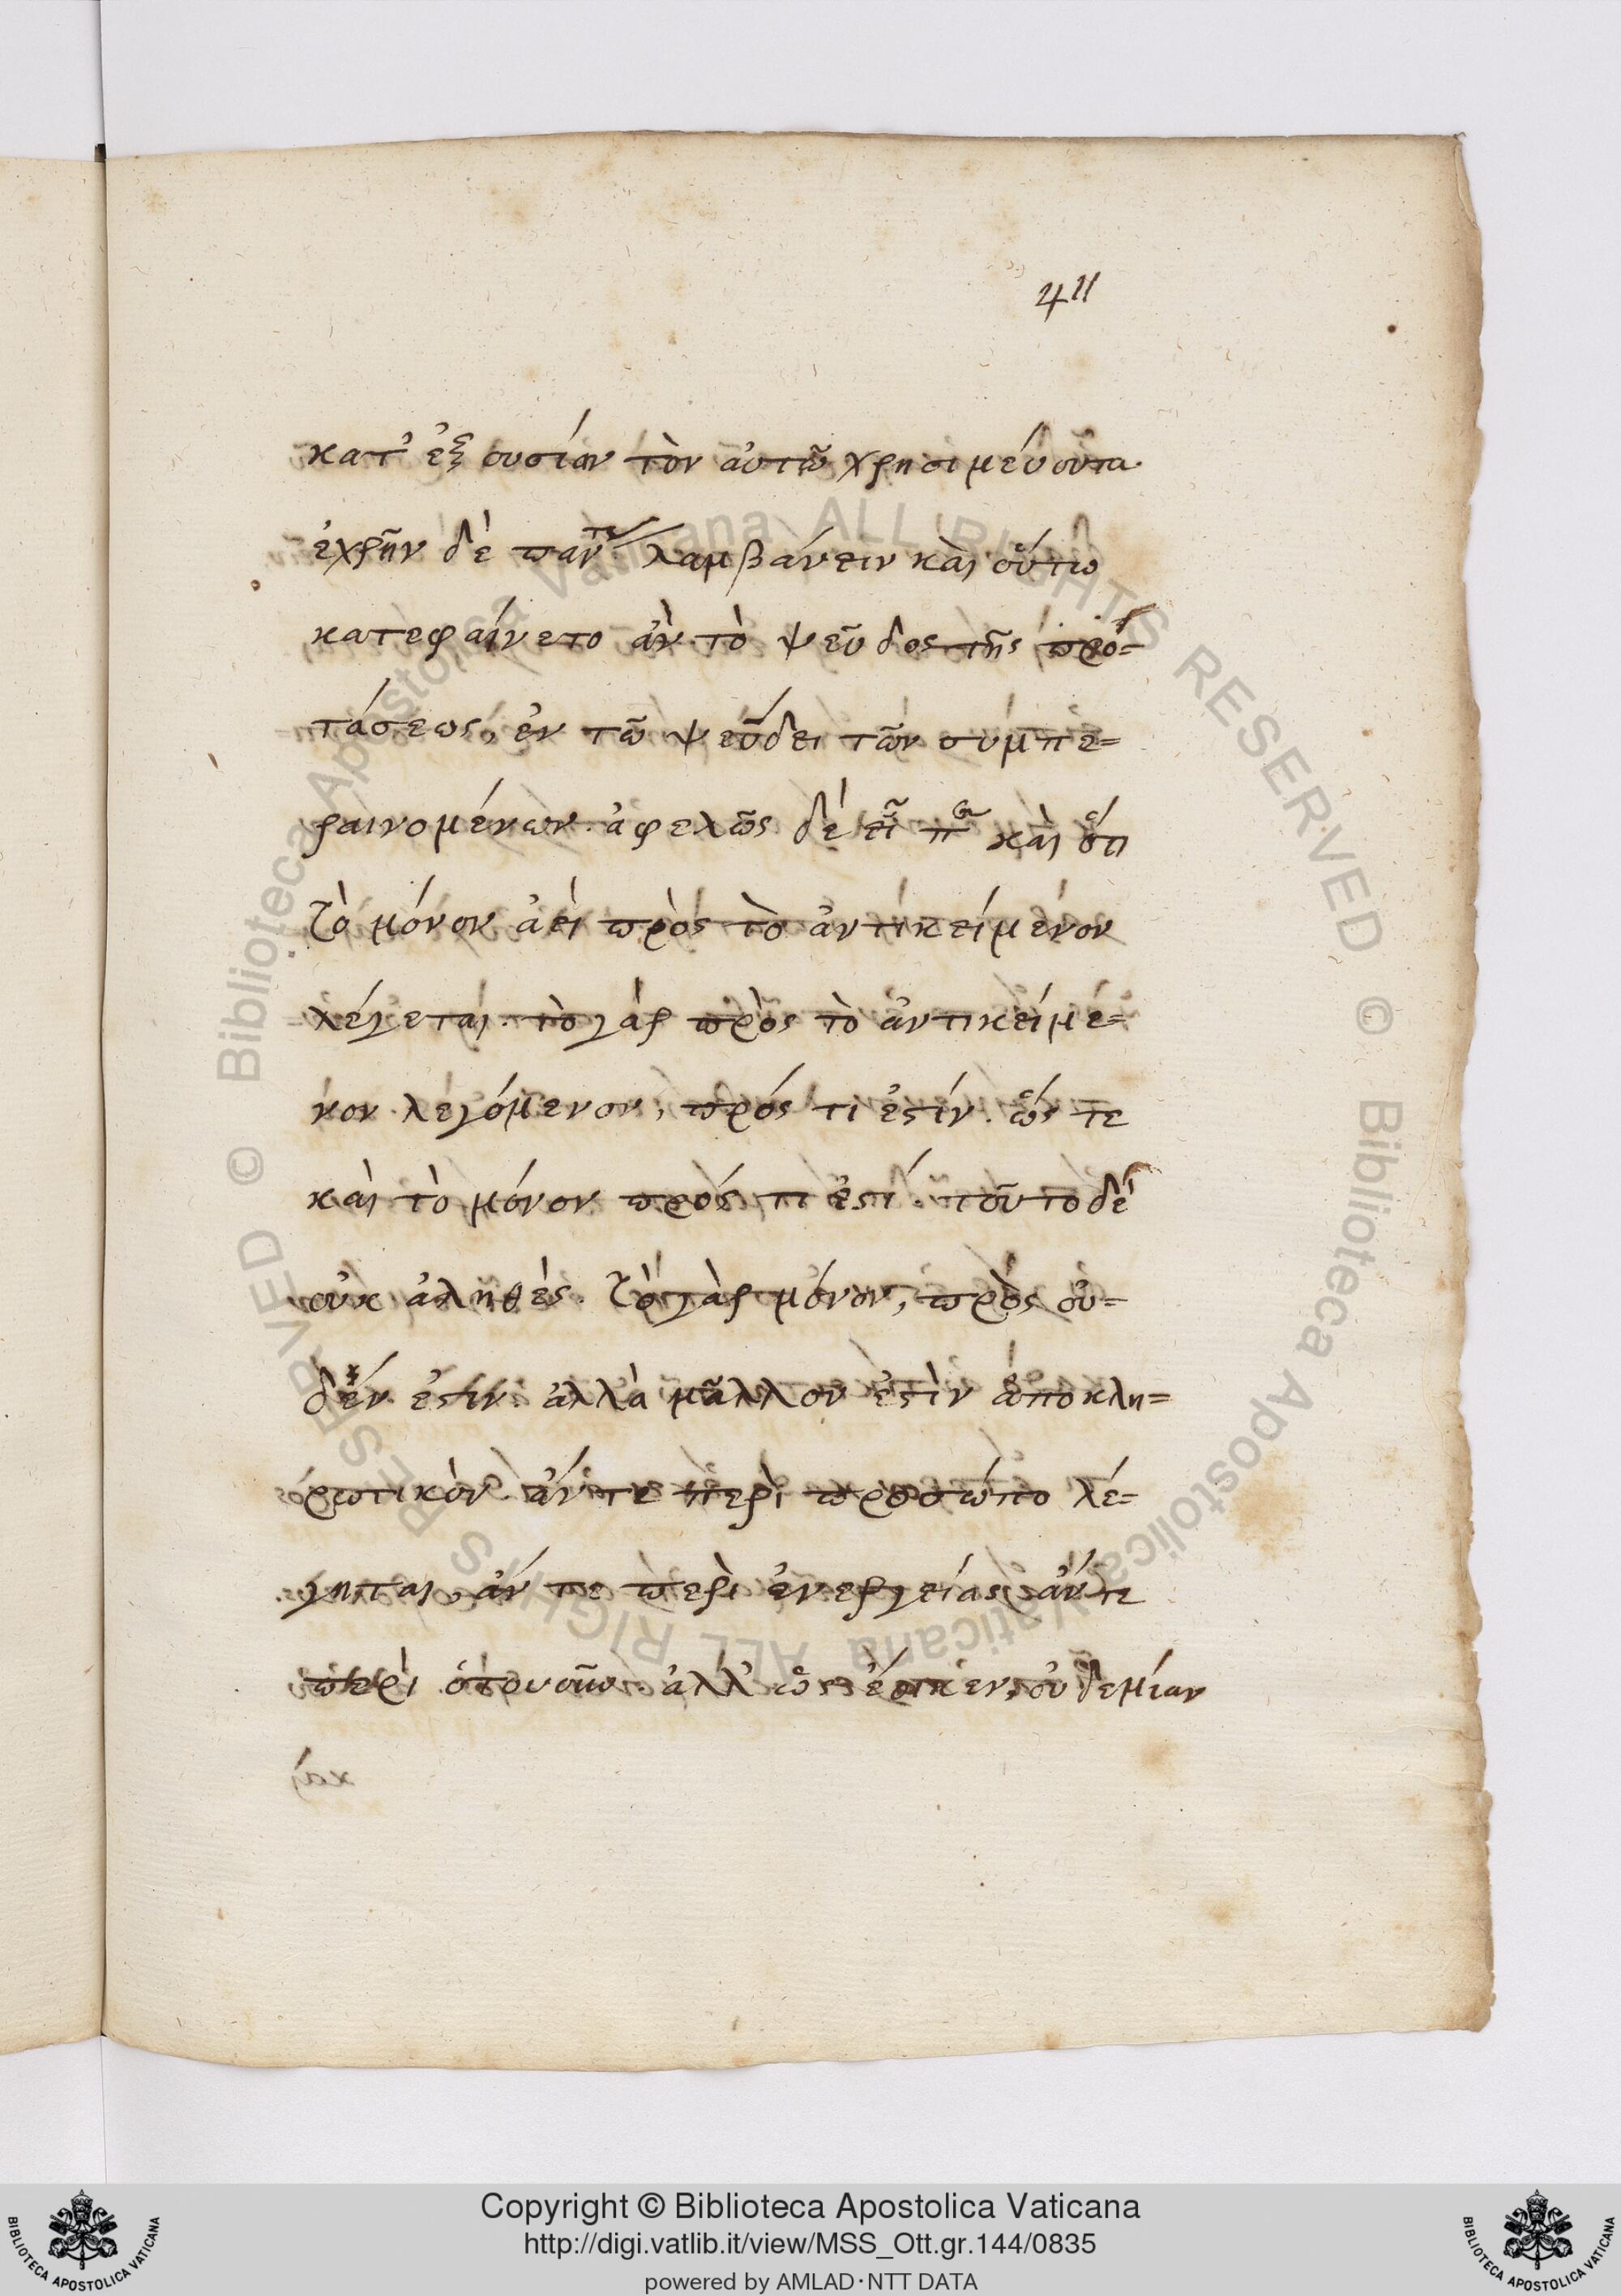 411
κατ' ἐξουσίαν τὸν αὐτῶ χρησιμεύοντα
ἐχρῆν δὲ λαμβάνειν καὶ οὕτω
κατεφαίνετο ἂν τὸ ψεῦδος τῆς προ=
τάσεως, ἐν τῶ ψεύδει τῶν συμπε=
ραινομένων. ἀφελῶς δὲ καὶ ὅτι
τὸ μόνον ἀεὶ πρὸς τὸ ἀντικείμενον
λέγεται. τὸ γὰρ πρὸς τὸ ἀντικείμε=
νον λεγόμενον, πρός τι ἐστίν. ὥστε
καὶ τὸ μόνον πρός τι ἐστί. τοῦτο δὲ
οὐκ ἀληθές. τὸ γὰρ μόνον, πρὸς οὐ=
δέν ἐστιν. ἀλλὰ μᾶλλον ἐστὶν ἀποκλη=
ρωτικὸν ἄν τε περὶ προσώπο λέ=
γηται, ἄν τε περὶ ἐνεργείας ἄν τε
περὶ ὁτουοῦν. ἀλλ' ὡς ἔοικεν, οὐδεμίαν
Copyright © Biblioteca Apostolica Vaticana
http://digi.vatlib.it/view/MSS_Ott.gr.144/0835
powered by AMLAD·NTT DATA
BIBLIOTECA APOSTOLICA VATICANA
BIBLIOTECA APOSTOLICA VATICANA
© Biblioteca Apostolica Vaticana ALL RIGHTS RESERVED
© Biblioteca Apostolica Vaticana ALL RIGHTS RESERVED